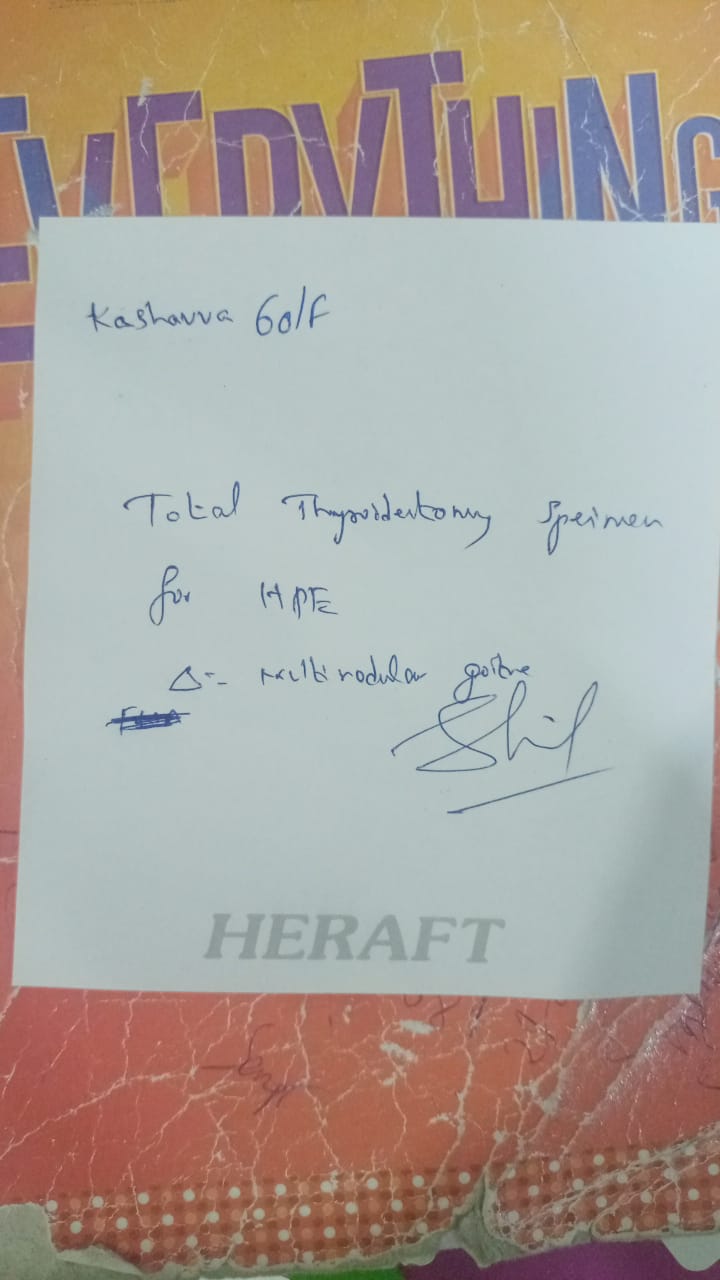 EVERYTHING
Kashavva 60/F
Total Thyroidectomy Speimen
for HPE
Δ:- Multinodular goitre
HERAFT